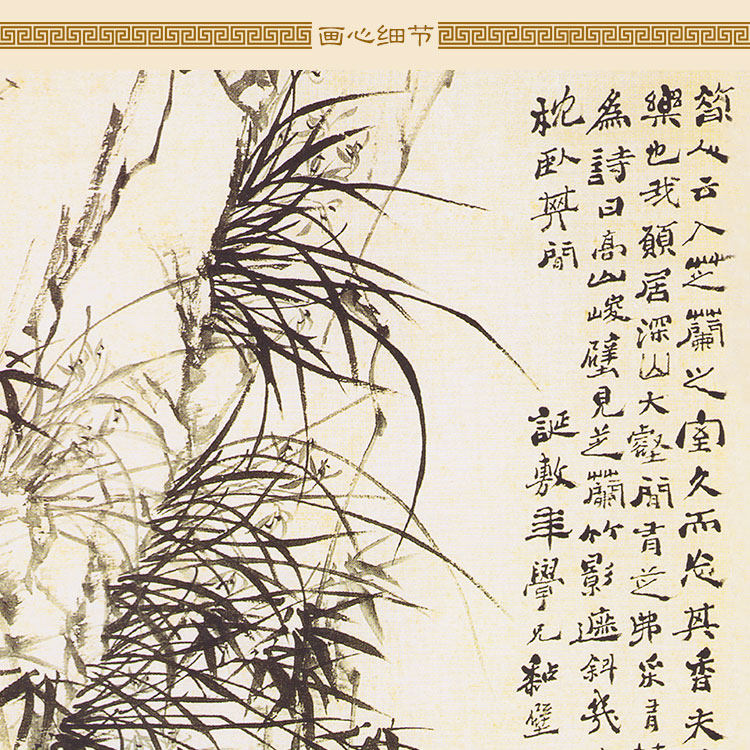 画心细节
昔人云入芝蘭之室久而忘其香夫
樂也我願居深山大壑間有芝弗采有
為詩曰高山峻壁見芝蘭竹影遮斜幾
枕臥其間 誕敷年學兄黏壁